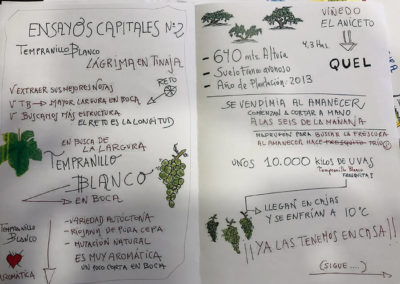 ENSAYOS CAPITALES Nº2
TEMPRANILLO BLANCO
LÁGRIMA EN TINAJA
RETO
√ EXTRAER SUS MEJORES NOTAS
√ TB → MAYOR LARGURA EN BOCA
√ BUSCAMOS MÁS ESTRUCTURA
EL RETO ES LA LONGITUD
EN BUSCA DE
LA LARGURA
TEMPRANILLO
BLANCO
EN BOCA
TEMPRANILLO
BLANCO
AROMÁTICA
-VARIEDAD AUTOCTONA
- RIOJANA DE PURA CEPA
- MUTACIÓN NATURAL
ES MUY AROMÁTICA
UN POCO CORTA EN BOCA
VIÑEDO
EL ANICETO
4,3 Ha.
QUEL
- 640 mts. Altura
- Suelo Franco arenoso
- Año de Plantación: 2013
SE VENDIMIA AL AMANECER
COMIENZAN A CORTAR A MANO
A LAS SEIS DE LA MAÑANA
MADRUGÓN PARA BUSCAR LA FRESCURA
AL AMANECER HACE FRESQUITO FRÍO
UNOS 10.000 KILOS DE UVAS
Tempranillo Blanco
FRESQUITA!
LLEGAN EN CAJAS
Y SE ENFRÍAN A 10ºC
¡¡YA LAS TENEMOS EN CASA!!
(SIGUE....)